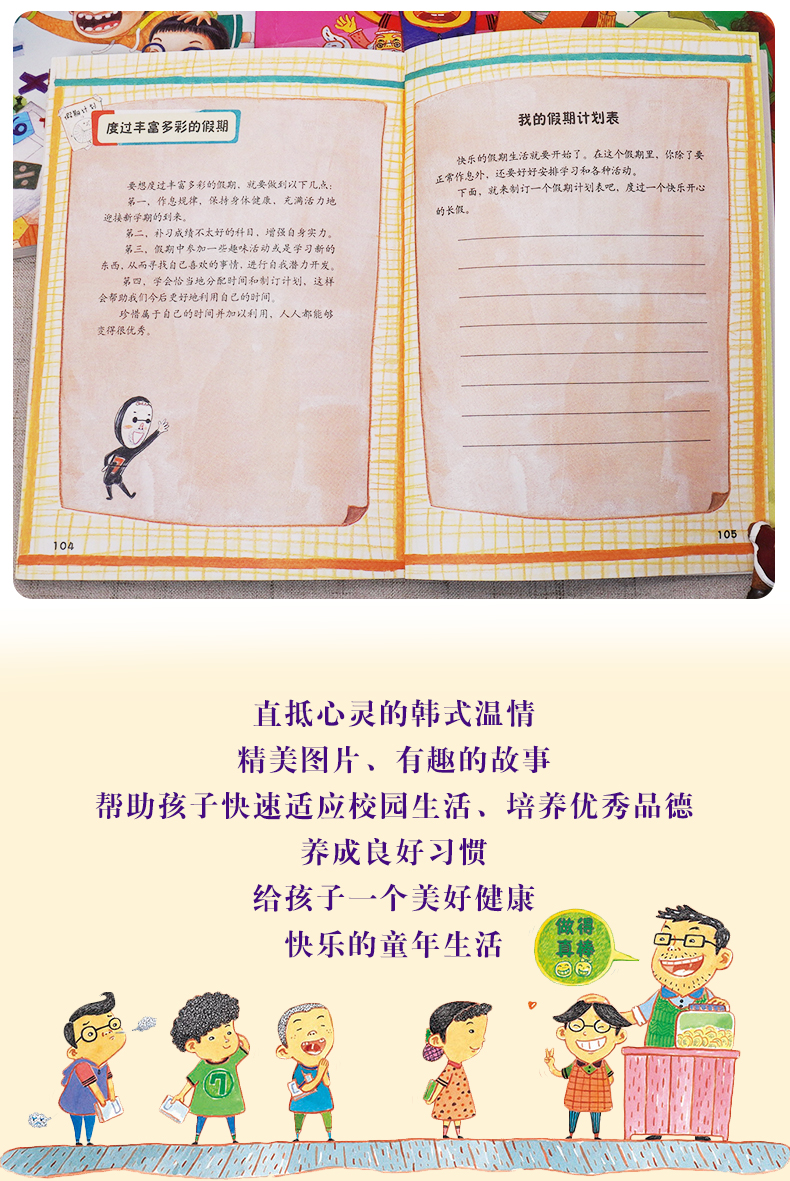 假期计划
度过丰富多彩的假期
要想度过丰富多彩的假期，就要做到以下几点：
第一，作息规律，保持身体健康，充满活力地
迎接新学期的到来。
第二，补习成绩不太好的科目，增强自身实力。
第三，假期中参加一些趣味活动或是学习新的
东西，从而寻找自己喜欢的事情，进行自我潜力开发。
第四，学会恰当地分配时间和制订计划，这样
会帮助我们今后更好地利用自己的时间。
珍惜属于自己的时间并加以利用，人人都能够
变得很优秀。
104
我的假期计划表
快乐的假期生活就要开始了。在这个假期里，你除了要
正常作息外，还要好好安排学习和各种活动。
下面，就来制订一个假期计划表吧，度过一个快乐开心
的长假。
105
直抵心灵的韩式温情
精美图片、有趣的故事
帮助孩子快速适应校园生活、培养优秀品德
养成良好习惯
给孩子一个美好健康
快乐的童年生活
做得
真棒
7